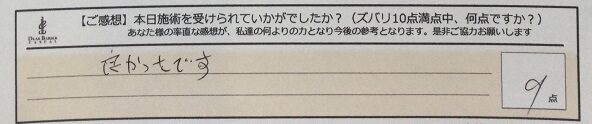 【ご感想】本日施術を受けられていかがでしたか？（ズバリ10点満点中、何点ですか？）
あなた様の率直な感想が、私達の何よりの力となり今後の参考となります。是非ご協力お願いします
DEAR BARBER
良かったです
9
点